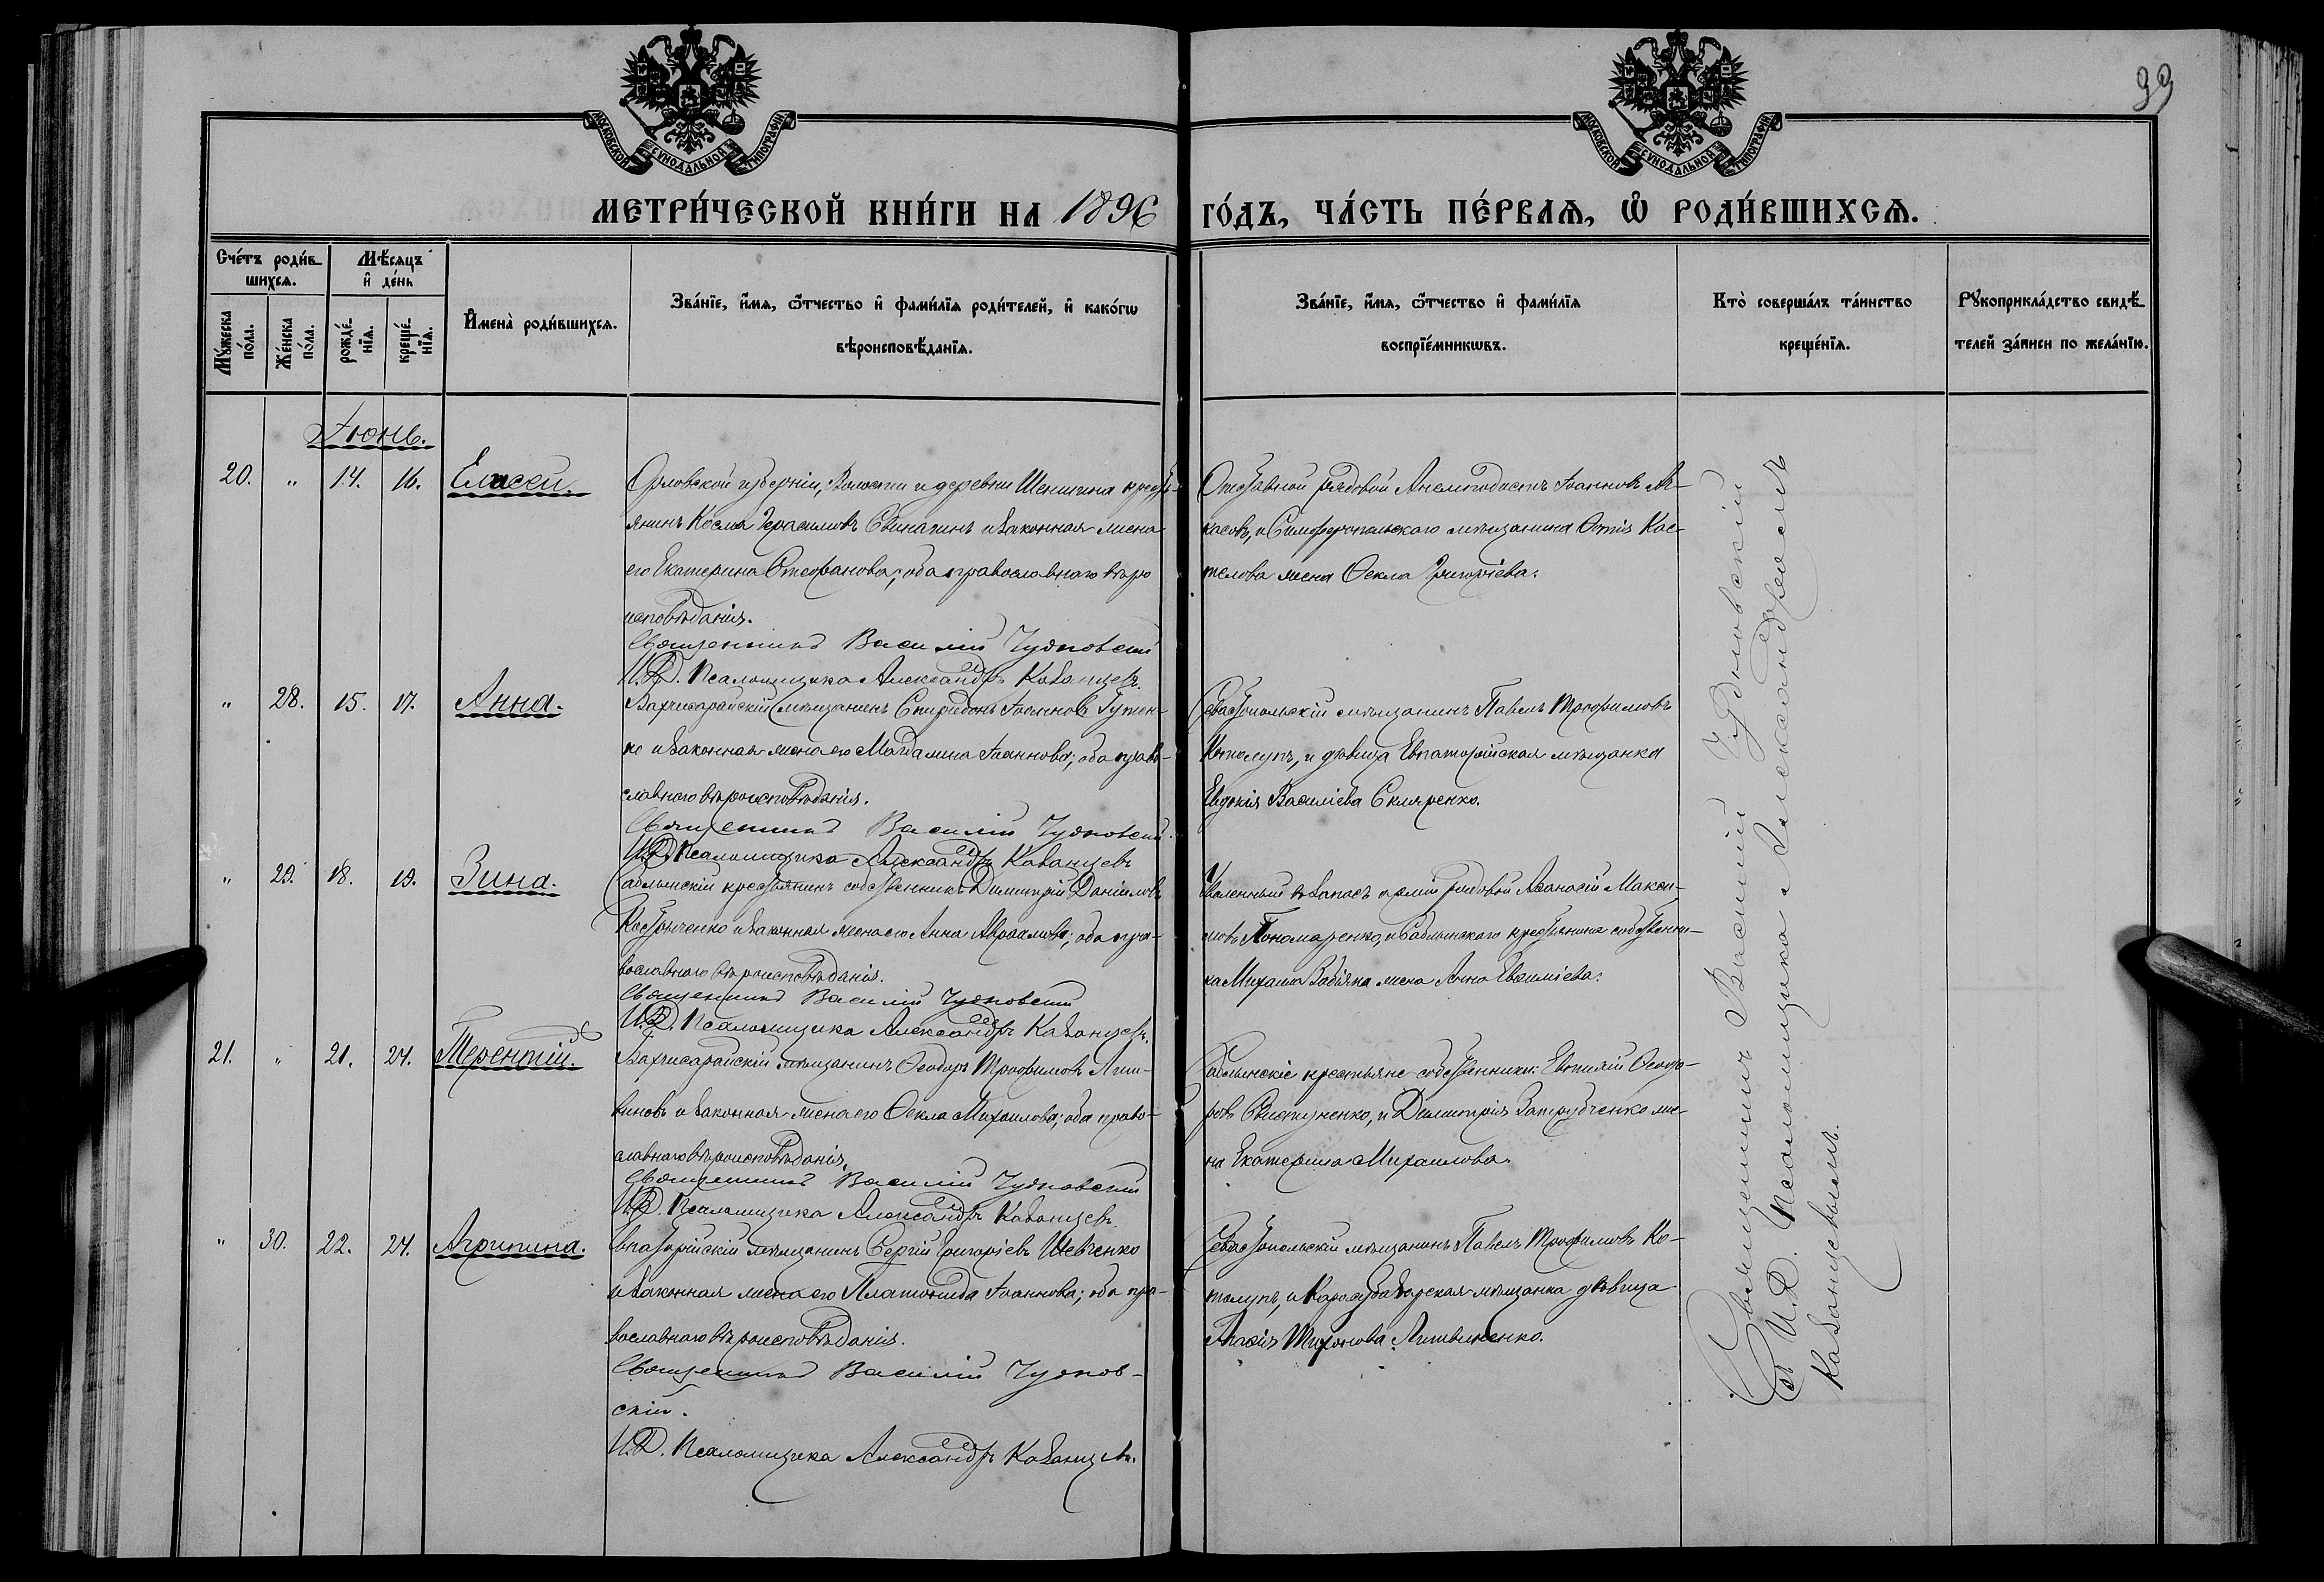 99
МОСКОВСКОЙ СѴНОДАЛЬНОЙ ТИПОГРАФІИ
МОСКОВСКОЙ СѴНОДАЛЬНОЙ ТИПОГРАФІИ
МЕТРИ́ЧЕСКОЙ КНИ́ГИ НА 1896 ГО́ДЪ, ЧА́СТЬ ПЕ́РВАѦ, Ѡ РОДИ́ВШИХСѦ.
Сче́тъ роди́в-
шихсѧ.
Мѣ́сѧцъ
и де́нь
Мꙋ́жеска
по́ла.
Же́нска
по́ла.
рожде́-
нїѧ.
креще́-
нїѧ.
Имена̀ роди́вшихсѧ.
Зва́нїе, и́мѧ, ѻ҆́тчество и фами́лїѧ роди́телей, и како́гѡ
вѣроисповѣ́данїѧ.
Зва́нїе, и́мѧ, ѻ҆́тчество и фами́лїѧ
воспрїе́мникѡвъ.
Кто̀ соверша́лъ та́инство
креще́нїѧ.
Рꙋкоприкла́дство свидѣ́-
телей за́писи по жела́нїю.
Іюнь.
20. " 14. 16. Елисей.
Орловской губерніи, Волости и деревни Шеншина кресть-
янинъ Косма Герасимовъ Свинапинъ и законная жена
его Екатерина Стефанова; оба православнаго вѣро
исповѣданія.
Священникъ Василій Чудновскій
И.Д. Псаломщика Александръ Казанцевъ.
Отставной рядовой Анемподистъ Іоанновъ
касовъ, и Симферопольскаго мѣщанина Кос-
телова жена Ѳекла Григоріева.
" 28. 15. 17. Анна.
Бахчисарайскій мѣщанинъ Спиридонъ Іоанновъ Гутен-
ко и законная жена его Магдалина Іоаннова; оба право-
славнаго вѣроисповѣданія.
Священникъ Василій Чудновскій.
И.Д. Псаломщика Александръ Казанцевъ
Севастопольскій мѣщанинъ Павелъ Трофимовъ
Котолупъ, и дѣвица Евпаторійская мѣщанка
Евдокія Василіева Скляренко.
" 29. 18. 19. Зина.
Саблынскій крестьянинъ собственникъ Димитрій Даніиловъ
Костыченко и законная жена его Анна Авраамова; оба пра-
вославнаго вѣроисповѣданія.
Священникъ Василій Чудновскій
И.Д. Псаломщика Александръ Казанцевъ.
Уволенный въ запасъ арміи рядовой Аѳанасій Макси-
мовъ Пономаренко, и Саблынскаго крестьянина собственни-
ка Михаила жена Анна Евѳиміева.
21. " 21. 24. Терентій.
Бахчисарайскій мѣщанинъ Ѳеодоръ Трофимовъ Лит-
виновъ и законная жена его Ѳекла Михаилова; оба право-
славнаго вѣроисповѣданія.
Священникъ Василій Чудновскій
И.Д. Псаломщика Александръ Казанцевъ.
Саблынскіе крестьяне собственники: Евѳимій Ѳеодо-
ровъ Свистуненко, и Димитрія Затрубченко же-
на Екатерина Михаилова.
" 30. 22. 24. Агрипина.
Евпаторійскій мѣщанинъ Сергій Григоріевъ Шевченко
и законная жена его Платонида Іоаннова; оба пра-
вославнаго вѣроисповѣданія.
Священникъ Василій Чуднов-
скій.
И.Д. Псаломщика Александръ Казанцевъ.
Севастопольскій мѣщанинъ Павелъ Трофимовъ Ко-
толупъ, и Карасубазарская мѣщанка дѣвица
Агаѳія Тихонова Литвиненко.
Священникъ Василій Чудновскій
съ И.Д. Псаломщика Александромъ
Казанцевымъ.